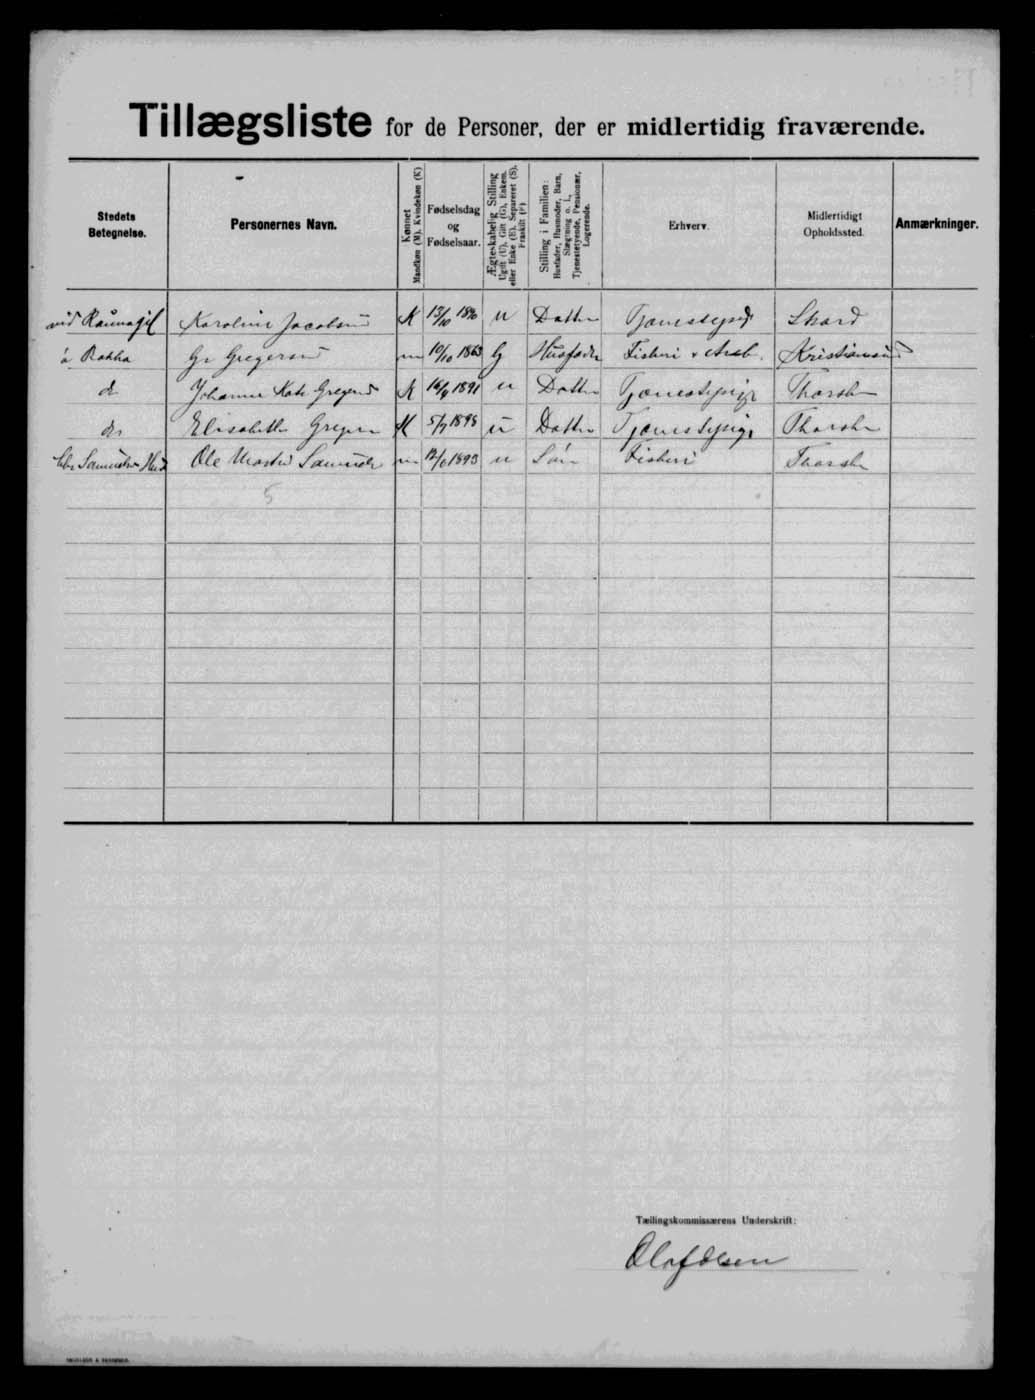 Tillægsliste for de Personer, der er midlertidig fraværende.
Stedets Betegnelse.
Personernes Navn.
Kønnet
Mandkøn (M). Kvindekøn (K)
Fødselsdag
og
Fødselsaar.
Ægteskabelig Stilling
Ugift (U), Gift (G), Enkem.
eller Enke (E), Separeret (S),
Fraskilt (F)
Stilling i Familien:
Husfader, Husmoder, Barn,
Slægtning o. l.,
Tjenestetyende, Pensionær,
Logerende.
Erhverv.
Midlertidigt
Opholdssted.
Anmærkninger.
Karoline Jacobsen K u Datter Skard
á Bakka Gr Gregersen m 10/10 1863 G Husfader Fiskeri Kristiansund
do Johanne Gregers K 1891 u Datter Tjenestepige Thorsh
do Elisabeth Greger K u Datter Tjenestepige Thorsh
Ole m 1893 u Sön Fiskeri Thorsh
5
Tællingskommissærens Underskrift:
Olaf Olsen